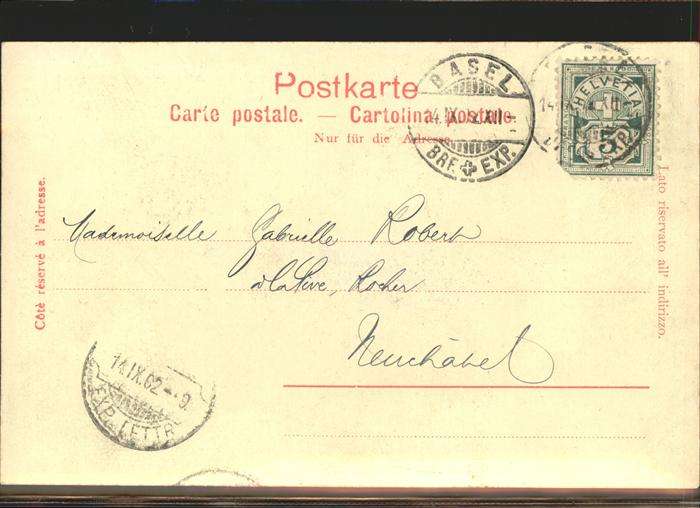 Postkarte
Carte postale. — Cartolina postale.
Nur für die Adresse.
BASEL
14.IX. XII
BRF. EXP.
HELVETIA
5
Côté réservé à l'adresse.
Lato riservato all' indirizzo.
Mademoiselle Gabrielle Robert
Rocher
Neuchâtel
14.IX.02 - 9
EXP. LETTR